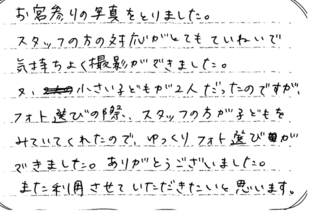 お宮参りの写真をとりました。
スタッフの方の対応がとてもていねいで
気持ちよく撮影ができました。
小さい子どもが2人だったのですが、
フォト選びの際、スタッフの方が子どもを
みていてくれたので、ゆっくりフォト選びが
できました。ありがとうございました。
また利用させていただきたいと思います。